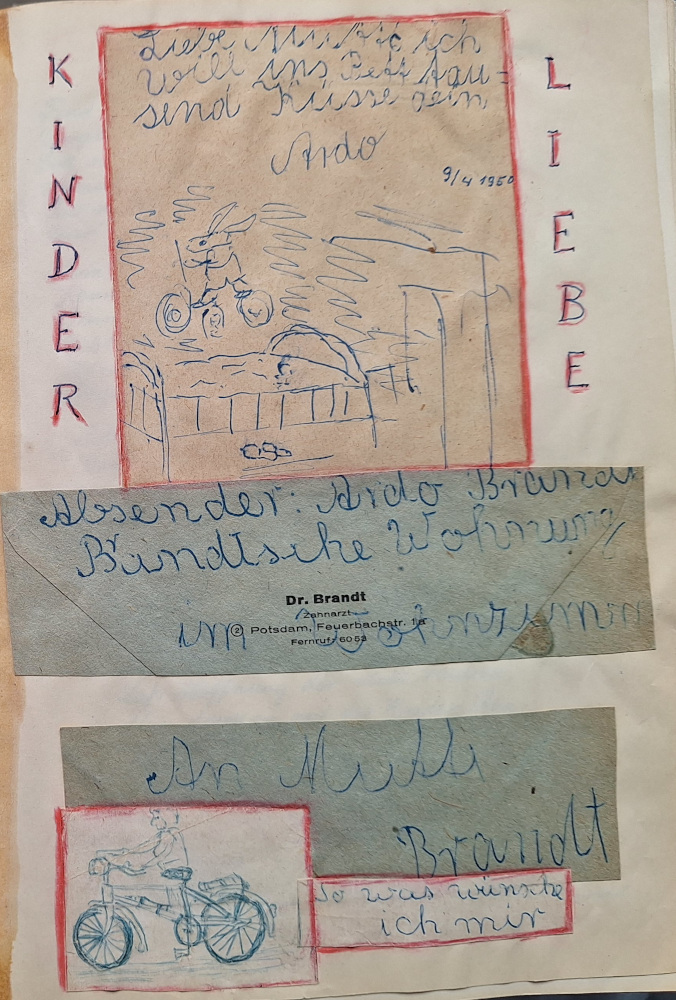 KINDER
LIEBE
Liebe Mutti ich
will ins Bett tau=
send Küsse dein
Ardo
9/4 1950
Absender: Ardo Brandt
Brandtsche Wohnung
Dr. Brandt
Zahnarzt
② Potsdam, Feuerbachstr. 1a
Fernruf: 6053
im Wohnzimmer
An Mutti
Brandt
So was wünsche
ich mir